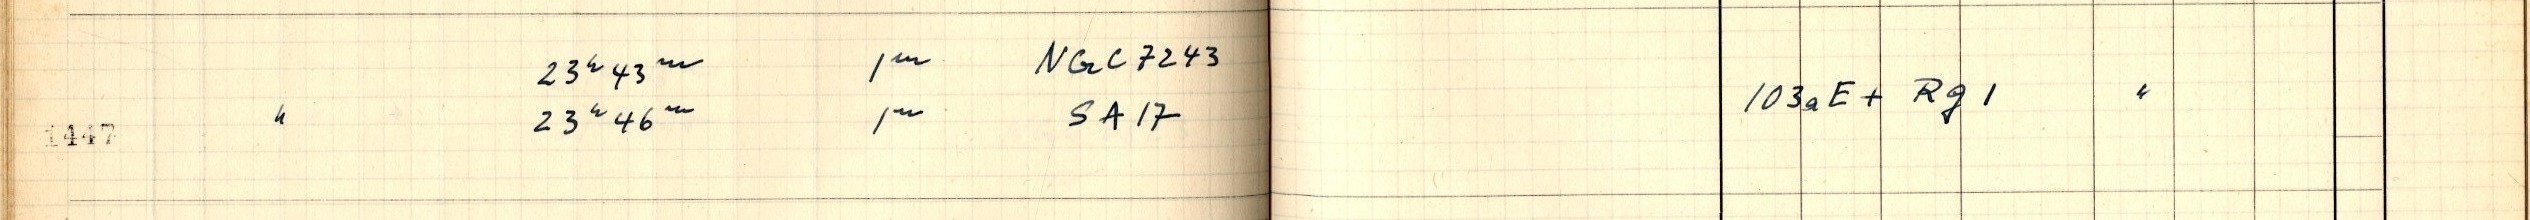 23ʰ 43ᵐ 1ᵐ NGC 7243
1447 " 23ʰ 46ᵐ 1ᵐ SA 17
103aE + Rg 1 "